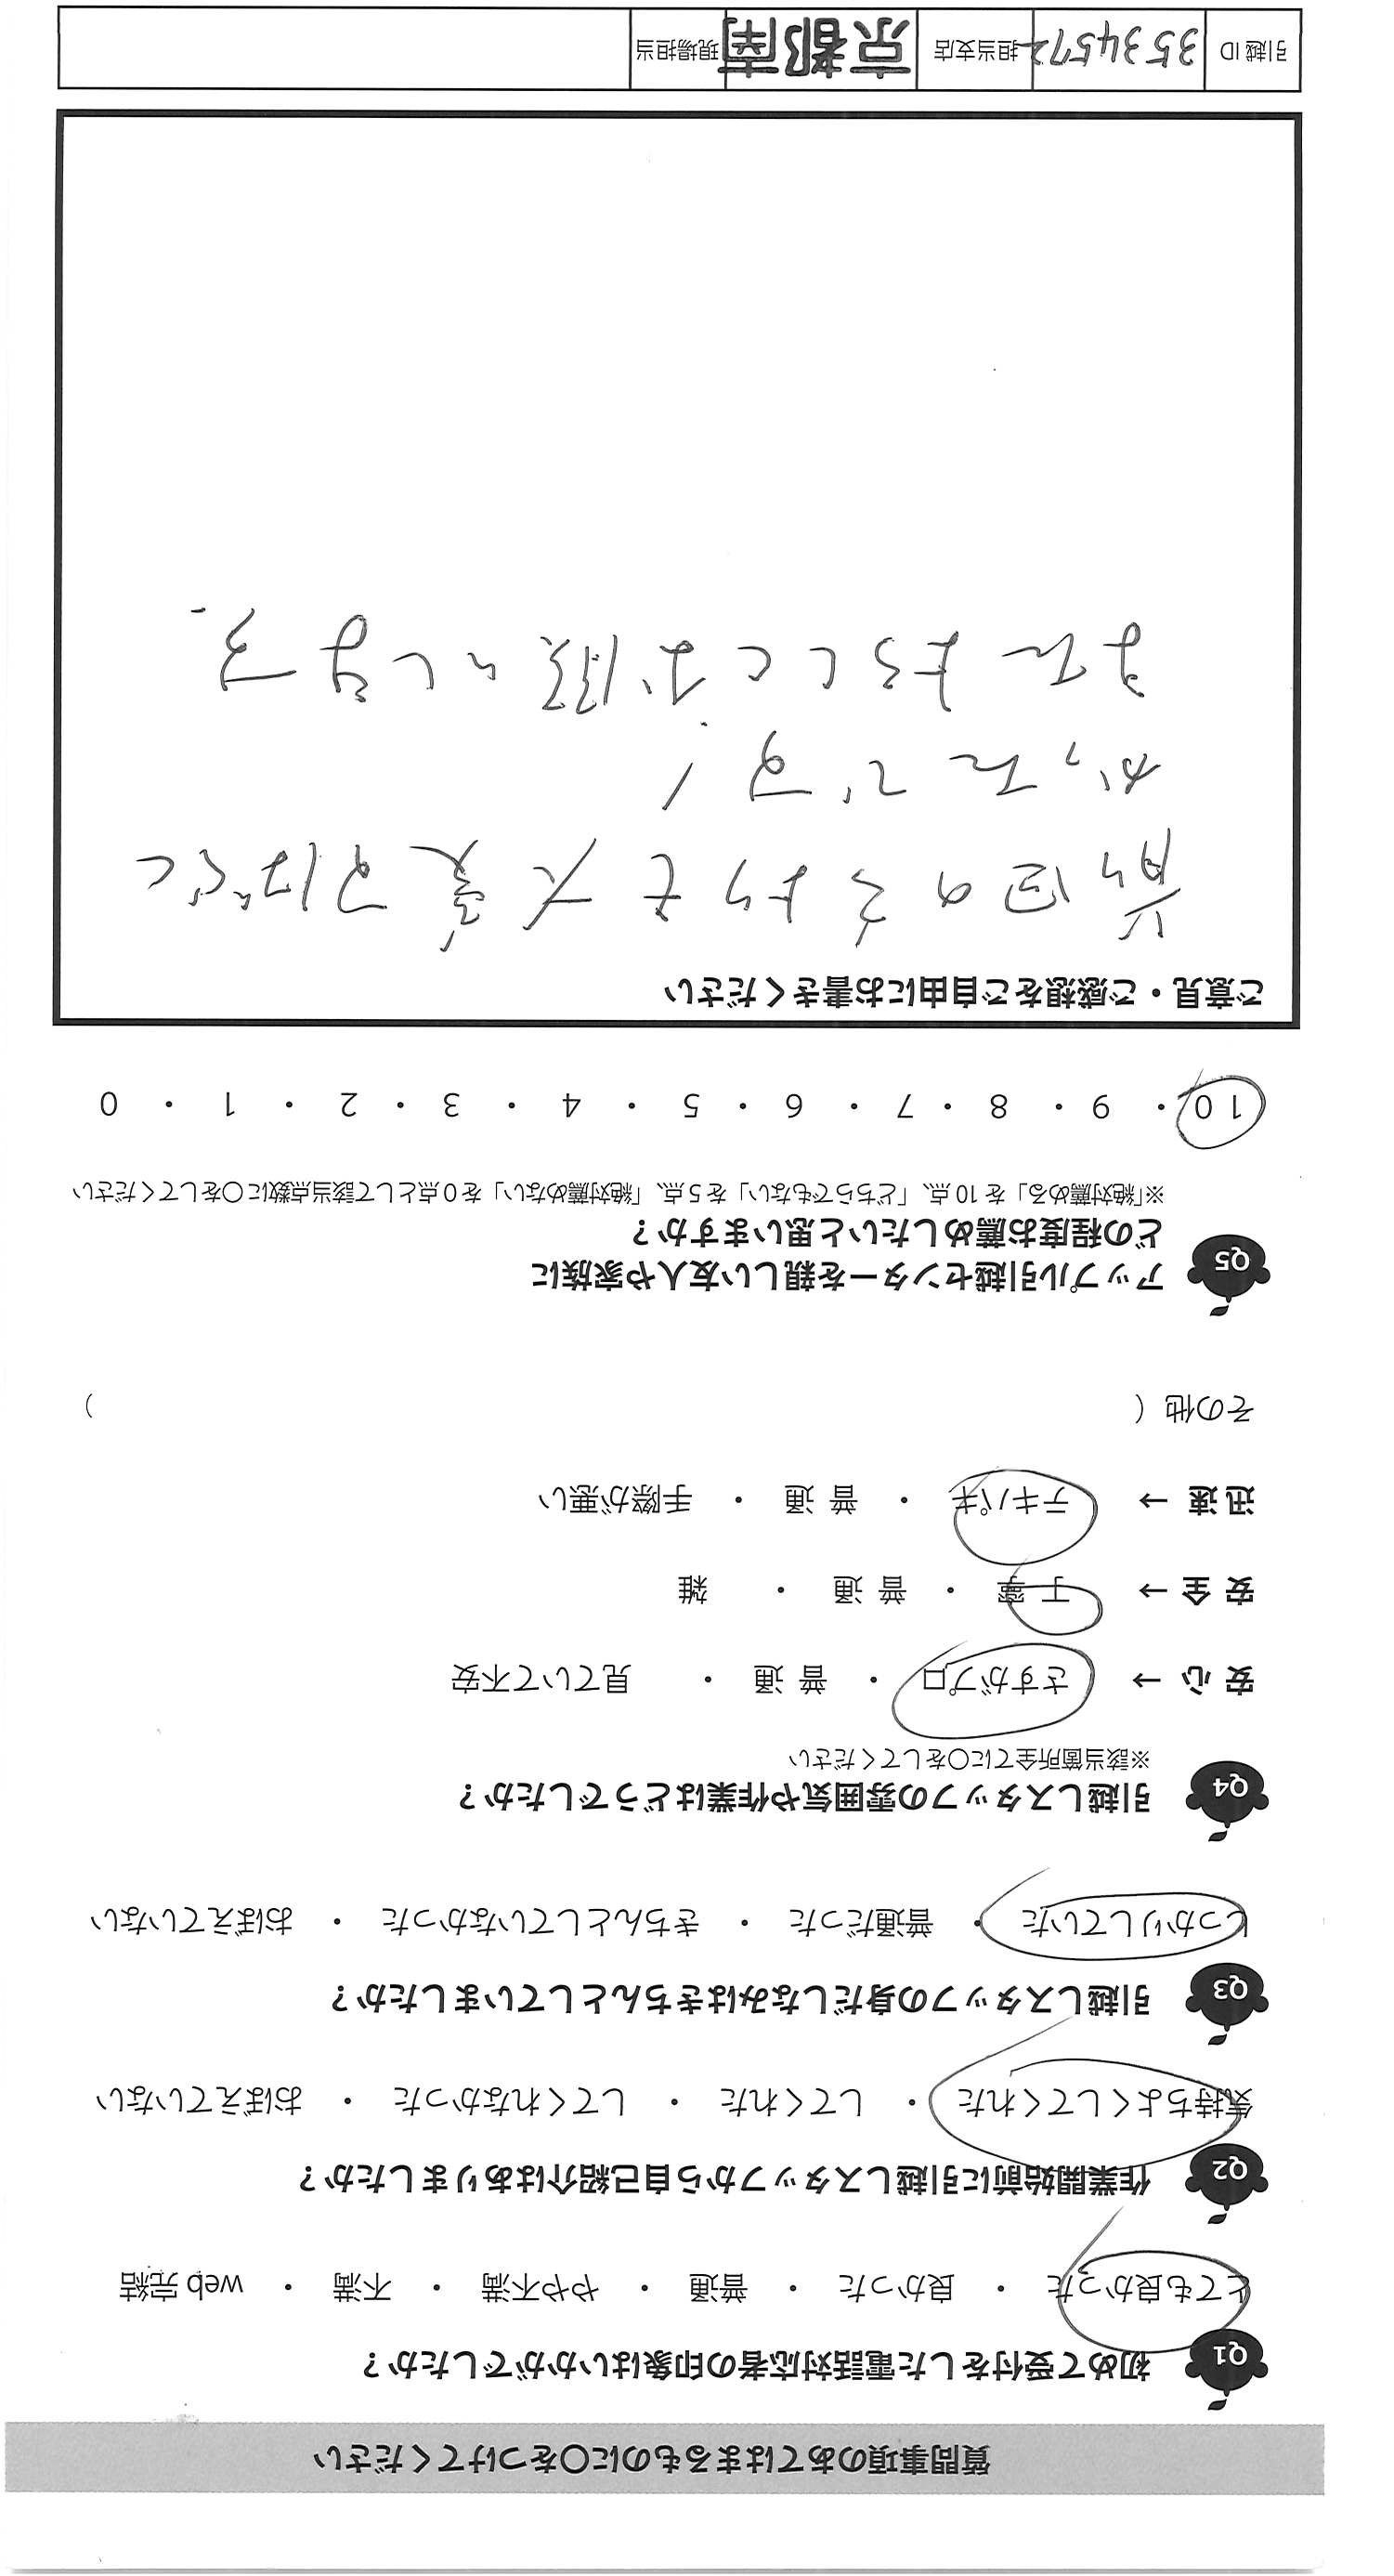 質問事項のあてはまるものに〇をつけてください
Q1 初めて受付をした電話対応者の印象はいかがでしたか？
とても良かった ・ 良かった ・ 普通 ・ やや不満 ・ 不満 ・ web 完結
Q2 作業開始前に引越しスタッフから自己紹介はありましたか？
気持ちよくしてくれた ・ してくれた ・ してくれなかった ・ おぼえていない
Q3 引越しスタッフの身だしなみはきちんとしていましたか？
しっかりしていた ・ 普通だった ・ きちんとしていなかった ・ おぼえていない
Q4 引越しスタッフの雰囲気や作業はどうでしたか？
※該当箇所全てに〇をしてください
安 心 → さすがプロ ・ 普 通 ・ 見ていて不安
安 全 → 丁 寧 ・ 普 通 ・ 雑
迅 速 → テキパキ ・ 普 通 ・ 手際が悪い
その他（ ）
Q5 アップル引越センターを親しい友人や家族に
どの程度お薦めしたいと思いますか？
※「絶対薦める」を 10 点、「どちらでもない」を 5 点、「絶対薦めない」を 0 点として該当点数に〇をしてください
10 ・ 9 ・ 8 ・ 7 ・ 6 ・ 5 ・ 4 ・ 3 ・ 2 ・ 1 ・ 0
ご意見・ご感想をご自由にお書きください
前回のよりも大変すばらし
かったです!
またよろしくお願いします.
引越 ID 3534572 担当支店 京都南 現場担当